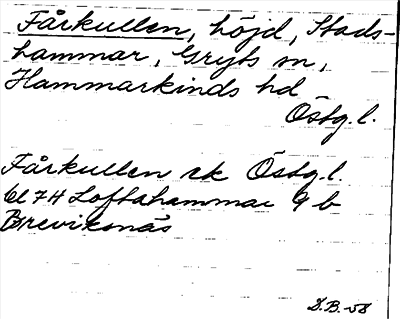 Fårkullen, höjd, Stads-
hammar, Gryts sn,
Hammarkinds hd
Östg. l.
Fårkullen ek Östg. l.
bl 74 Loftahammar 9 b
Breviksnäs
S.B. -58